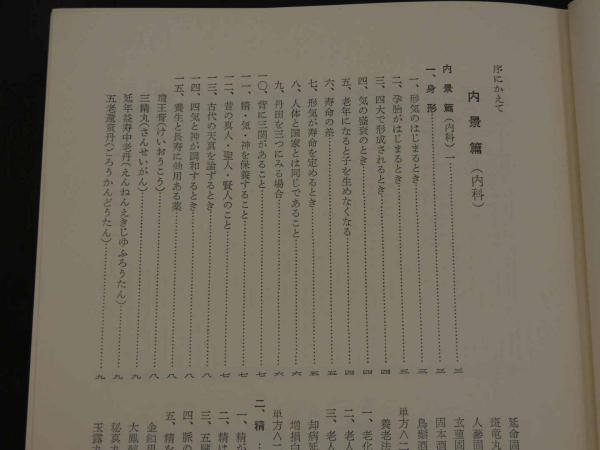 序にかえて
内景篇（内科）
内景篇（内科）一……三
一、身形……三
一、形気のはじまるとき……三
二、孕胎がはじまるとき……三
三、四大で形成されるとき……四
四、気の盛衰のとき……四
五、老年になると子を生めなくなる……四
六、寿命の差……五
七、形気が寿命を定めるとき……五
八、人体と国家とは同じであること……六
九、丹田を三つにみる場合……六
一〇、背に三関があること……七
一一、精・気・神を保養すること……七
一二、昔の真人・聖人・賢人のこと……七
一三、古代の天真を論ずるとき……七
一四、四気と神が調和するとき……八
一五、養生と長寿に効用ある薬……八
瓊玉膏（けいおうこう）……八
三精丸（さんせいがん）……九
延年益寿中老丹（えんねんえきじゅふろうたん）……九
五老還童丹（ごろうかんどうたん）……九
延命固
斑竜丸
人参固
玄菟固
固本酒
烏鬚酒
単方八二
養老法
一、老化
二、老人
三、老人
却病延
増損白
単方八二
二、精…
一、精が
二、精は
三、五臓
四、脈の
五、精を
金鎖思
大鳳髄
秘真丸
玉露丸